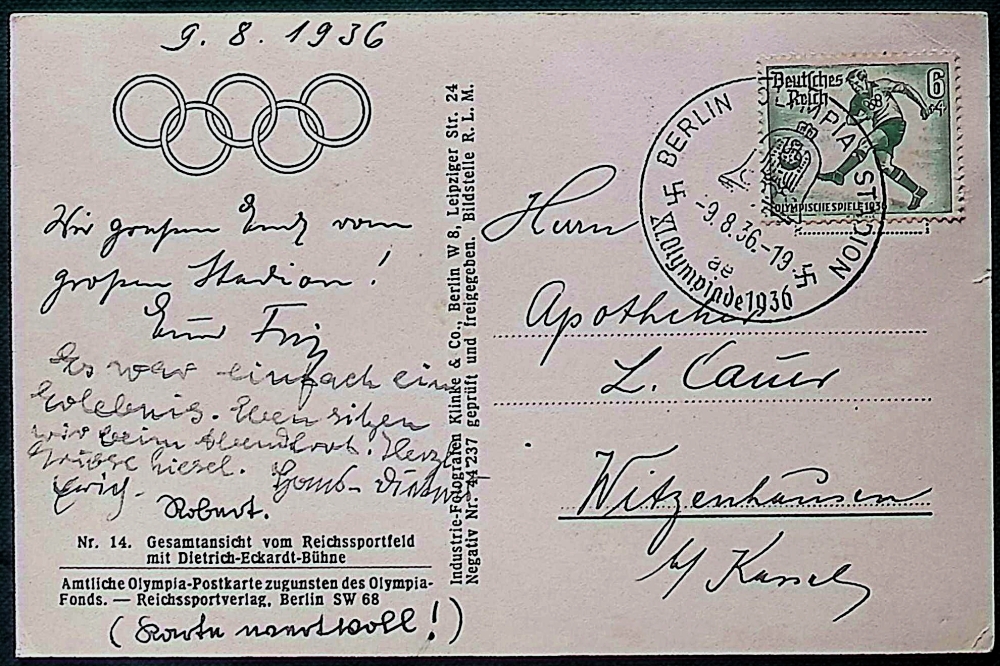 9. 8. 1936
Wir grüßen Euch vom
großen Stadion!
Euer Fritz
Es war einfach ein
Erlebnis. Eben sitzen
wir beim Abendbrot. Herzl.
Grüsse Liesel. Hans-Dieter
Erich.
Robert.
Nr. 14. Gesamtansicht vom Reichssportfeld
mit Dietrich-Eckardt-Bühne
Amtliche Olympia-Postkarte zugunsten des Olympia-
Fonds. — Reichssportverlag, Berlin SW 68
(Karte wertvoll!)
Industrie-Fotografen Klinke & Co., Berlin W 8, Leipziger Str. 24
Negativ Nr. 44 237 geprüft und freigegeben. Bildstelle R. L. M.
Deutsches
Reich
6
OLYMPISCHE SPIELE 1936
BERLIN OLYMPIA-STADION
-9.8.36.-19
ae
XI. Olympiade 1936
Herrn
Apotheker
L. Cauer
Witzenhausen
b/ Kassel